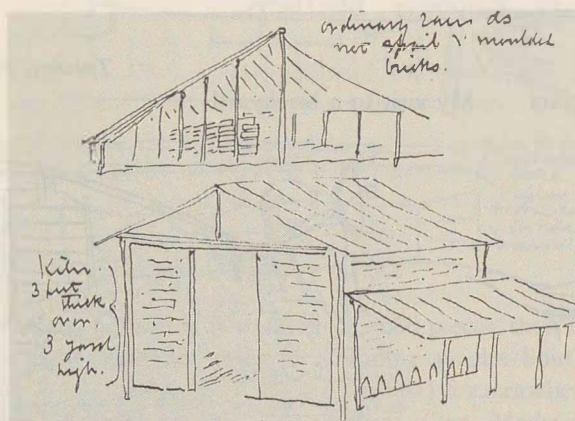 ordinary rains do
not spoil \ moulded
bricks.
Kiln
3 feet
thick
over.
3 yards
high.